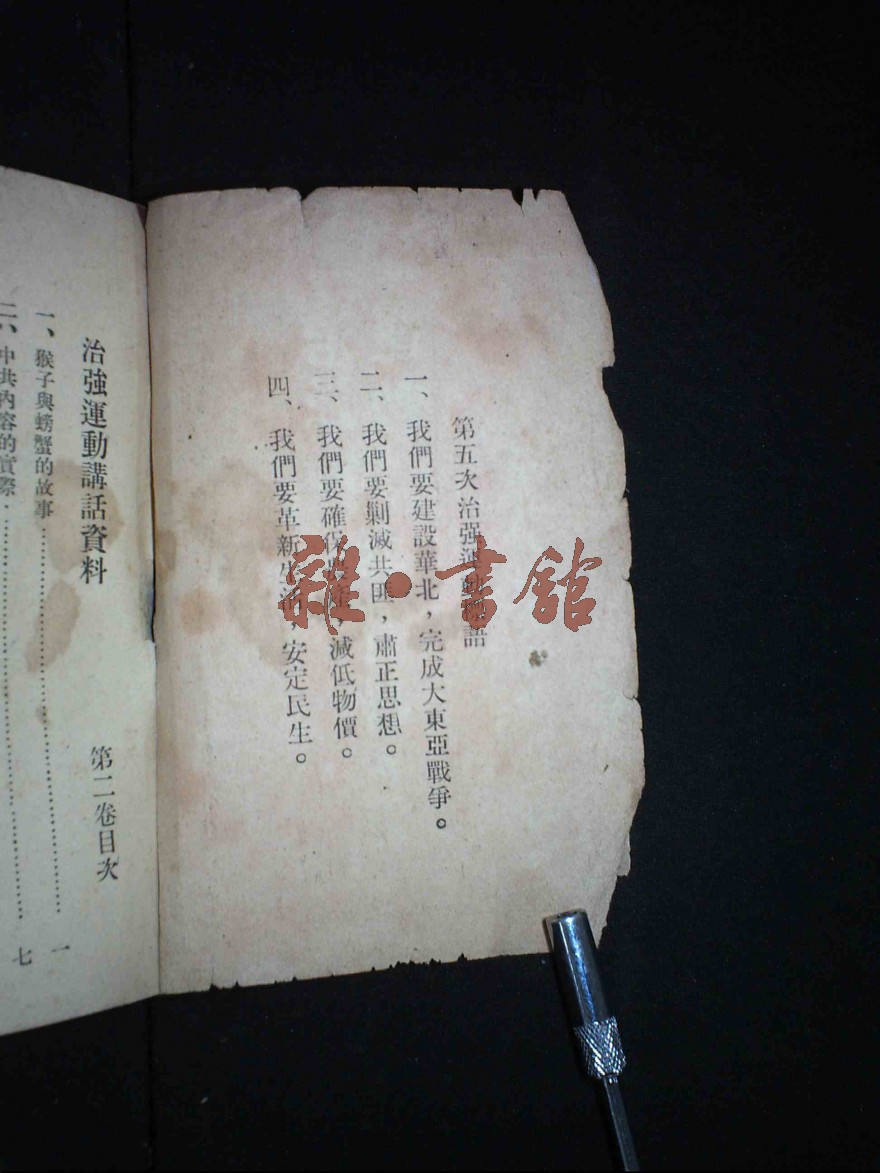 第五次治强運動標語
一、我們要建設華北，完成大東亞戰爭。
二、我們要剿滅共匪，肅正思想。
三、我們要確保農產，減低物價。
四、我們要革新生活，安定民生。
治強運動講話資料 第二卷目次
一、猴子與螃蟹的故事 一
二、中共內容的實際 七
雜·書館